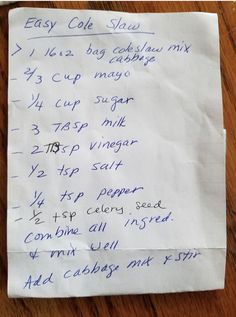 Easy Cole Slaw
> 1 16oz bag coleslaw mix
cabbage
- 2/3 cup mayo
- 1/4 cup sugar
- 3 TBsp milk
- 2 TBsp vinegar
- 1/2 tsp salt
- 1/4 tsp pepper
- 1/2 tsp celery seed
Combine all ingred.
& mix well
Add cabbage mix & stir